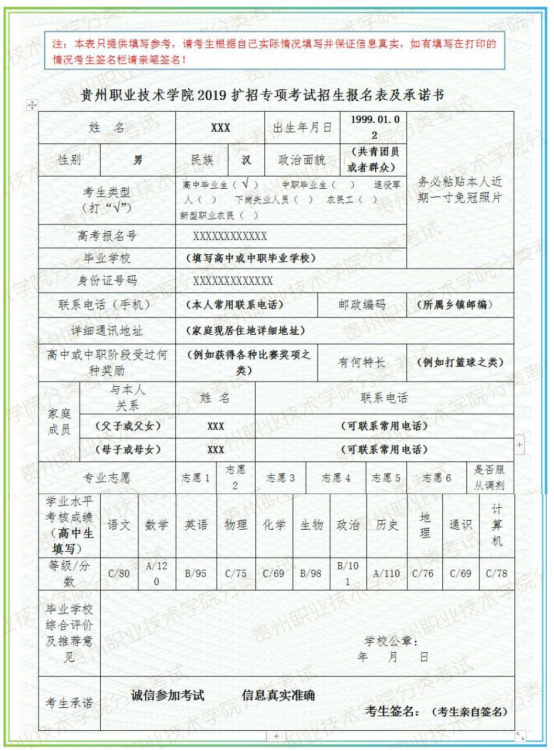 注：本表只提供填写参考，请考生根据自己实际情况填写并保证信息真实，如有填写在打印的
情况考生签名栏请亲笔签名！
贵州职业技术学院 2019 扩招专项考试招生报名表及承诺书
姓 名 XXX 出生年月日 1999.01.0
2
性别 男 民族 汉 政治面貌 （共青团员
或者群众）
务必粘贴本人近
期一寸免冠照片
考生类型
（打“√”）
高中毕业生（ √ ） 中职毕业生（ ） 退役军
人（ ） 下岗失业人员（ ） 农民工（ ）
新型职业农民（ ）
高考报名号 XXXXXXXXXXXX
毕业学校 （填写高中或中职毕业学校）
身份证号码 XXXXXXXXXXXXX
联系电话（手机） （本人常用联系电话） 邮政编码 （所属乡镇邮编）
详细通讯地址 （家庭现居住地详细地址）
高中或中职阶段受过何
种奖励
（例如获得各种比赛奖项之
类）
有何特长 （例如打篮球之类）
家庭
成员
与本人
关系
姓 名 联系电话
（父子或父女） XXX （可联系常用电话）
（母子或母女） XXX （可联系常用电话）
专业志愿 志愿 1 志愿
2 志愿 3 志愿 4 志愿 5 志愿 6 是否服
从调剂
学业水平
考核成绩
（高中生
填写）
语文 数学 英语 物理 化学 生物 政治 历史 地
理 通识 计
算
机
等级/分
数
C/80 A/12
0 B/95 C/75 C/69 B/98 B/10
1 A/110 C/76 C/69 C/78
毕业学校
综合评价
及推荐意
见
学校公章：
年 月 日
考生承诺
诚信参加考试 信息真实准确
考生签名：（考生亲自签名）
贵州职业技术学院分类考试